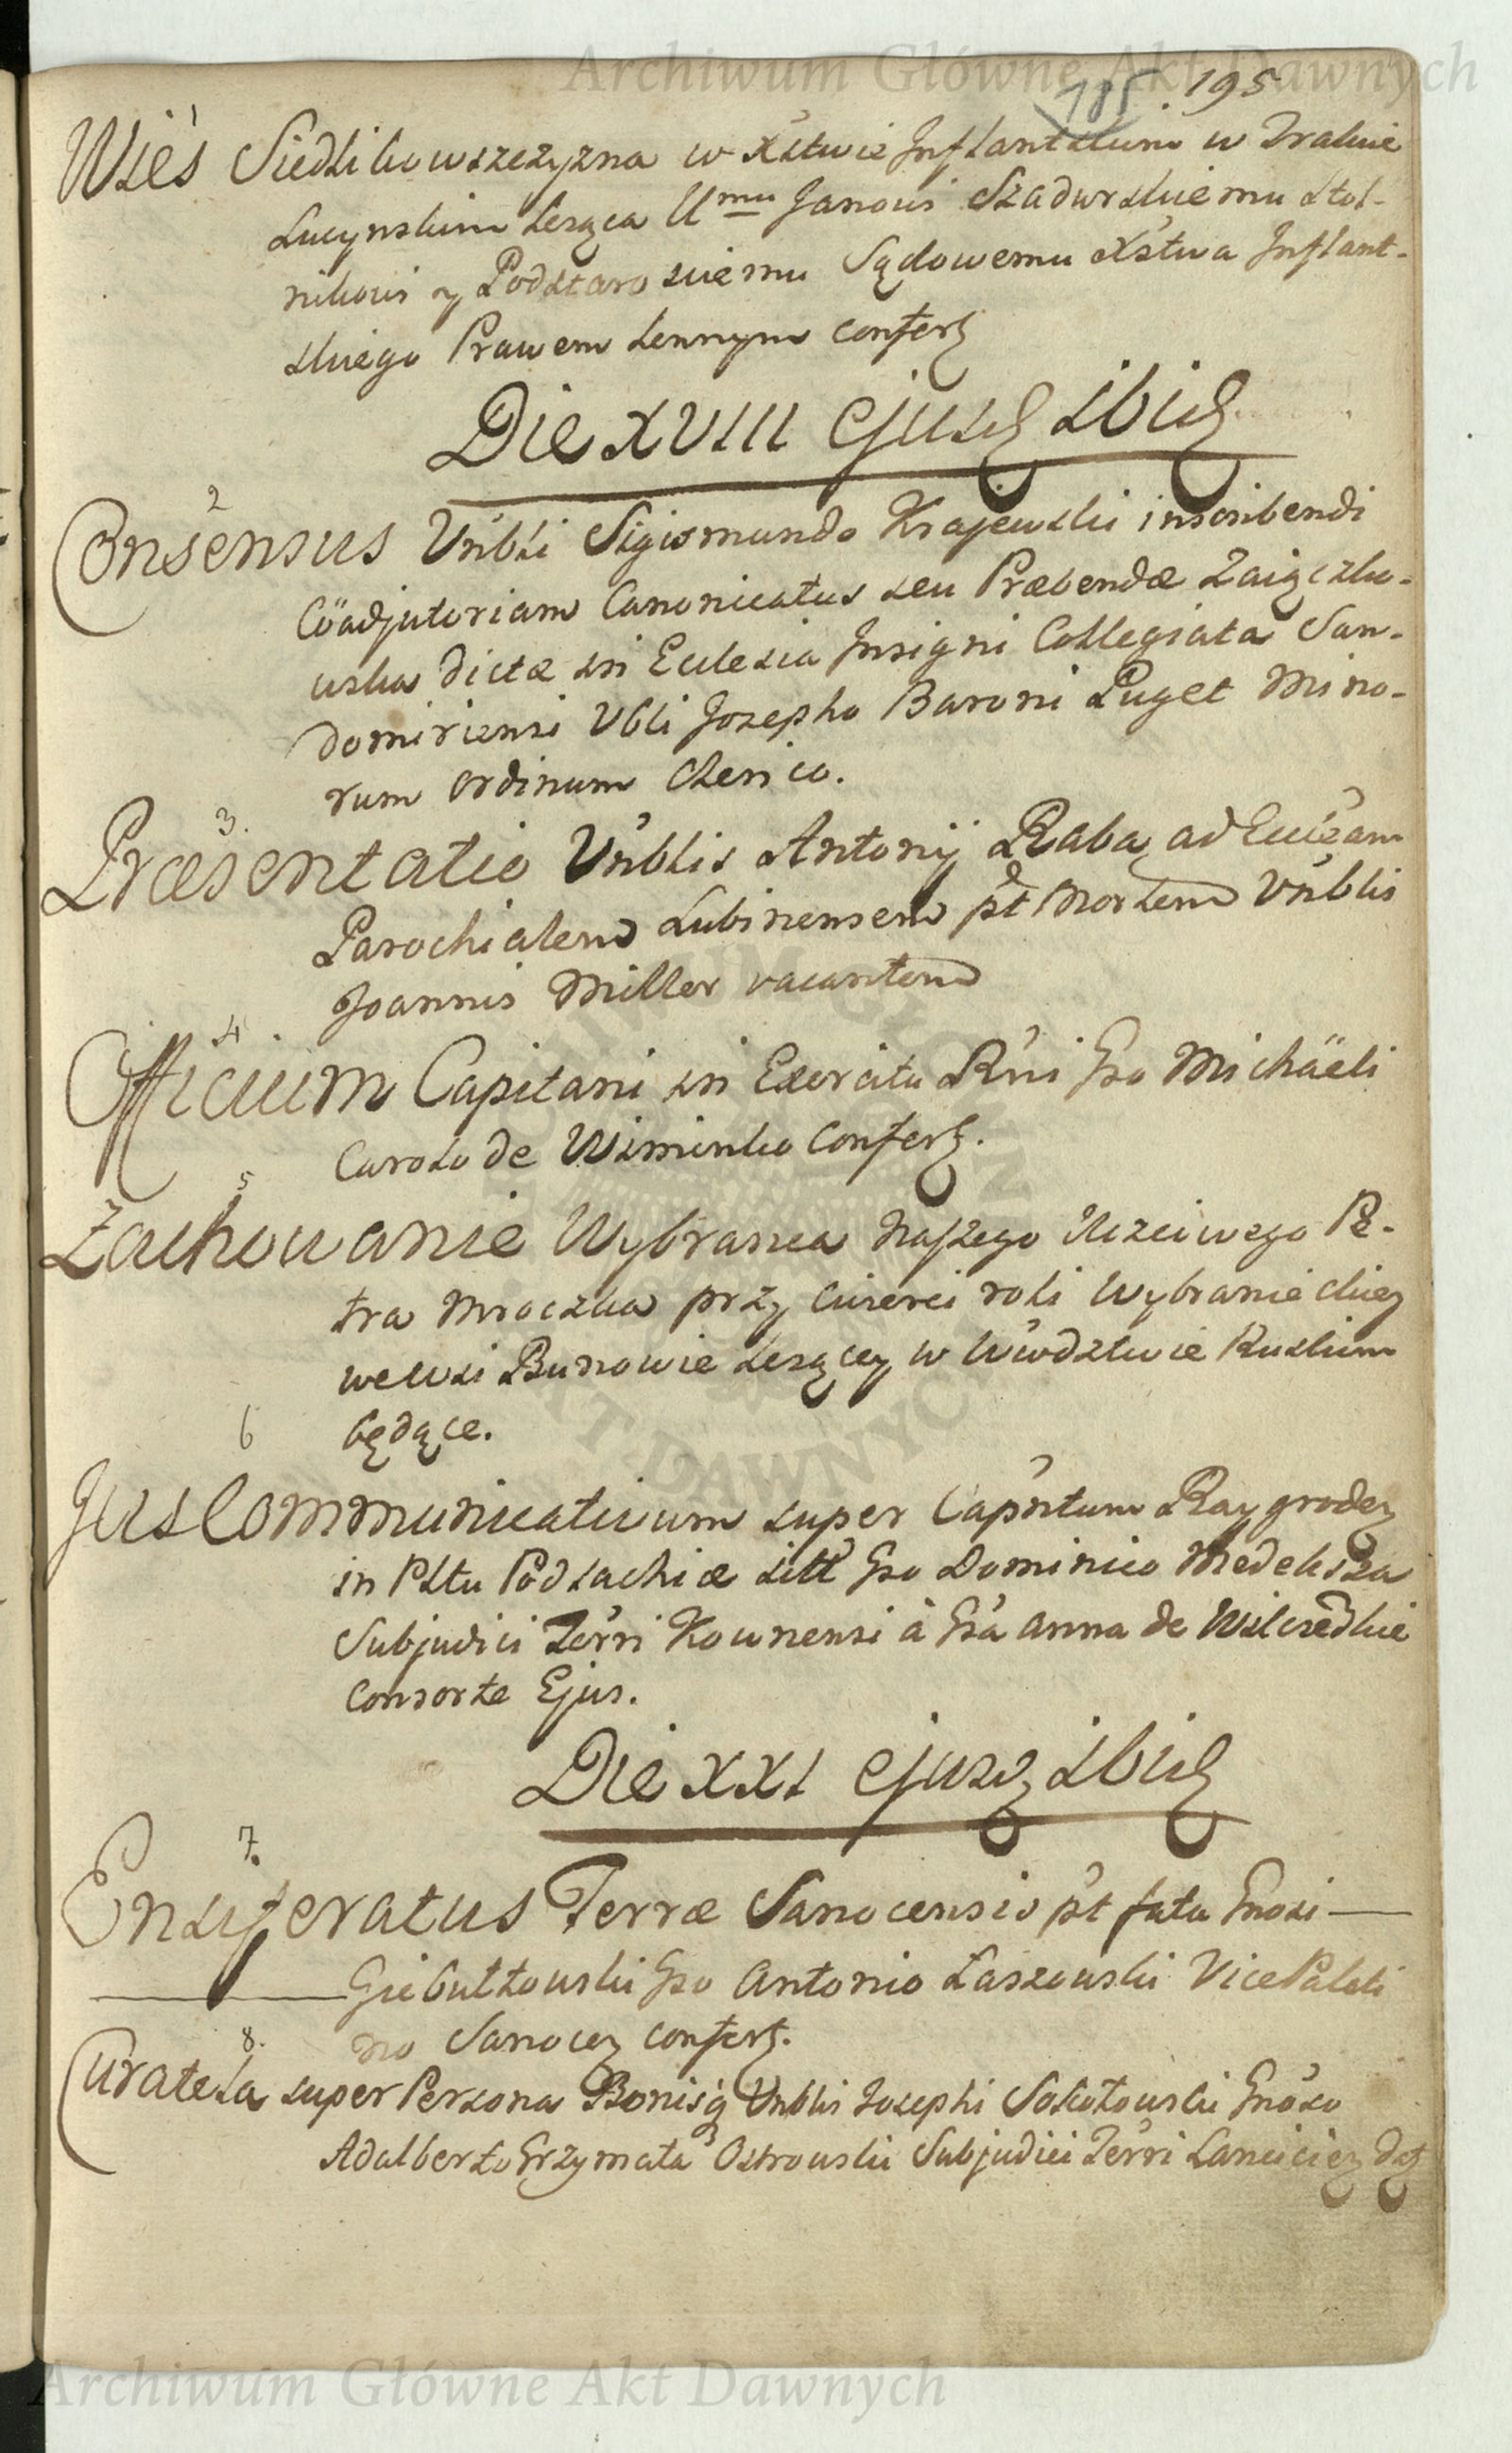 Archiwum Główne Akt Dawnych
185 195
1
Wieś Siedlikowszczyzna w Xstwie Inflantskim w Trakcie
Lucynskim leząca Urmu Janowi Szadurskiemu Stol-
nikowi y Podstaroscie mu Sądowemu Xstwa Inflant-
skiego Prawem Lennym confert
Die XVIII ejusd ibid
2
Consensus Vnbli Sigismundo Krajewski inscribendi
Cöadjutoriam Canonicatus seu Præbendæ Zaięczko-
wska dictæ in Ecclesia Insigni Collegiata San-
domiriensi Vbli Josepho Baroni Puget Mino-
rum Ordinum Clerico.
3.
Præsentatio Vnblis Antonij Raba ad Ecclêam
Parochialem Lubinensem pt Mortem Vnblis
Joannis Miller vacantem
4.
Officium Capitani in Exercitu Rni Gso Michäeli
Carolo de Wiminko Confert.
5
Zachowanie Wybranca Naszego Uczciwego Pe-
tra Mroczka przy cwierci roli Wybranieckiey
we Wsi Bunowie lezącey w Wwdztwie Ruskim
będące.
6
Jus Communicativum super Capntum Raygrodez
in Pltu Podlachiæ sitt Gso Dominico Medeksza
Subjudici Terri Kownensi à Gsa Anna de
Consorte Ejus.
Die XXI ejusd ibid
7.
Ensiferatus Terræ Sanocensis pt fata Gnosi
Giebułtowski Gso Antonio Laszowski Vice Palati
no Sanocez confert.
8.
Curatela super Persona Bonisq Vnblis Josephi Sokołowski Gnoso
Adalberto Grzymała Ostrowski Subjudici Terri Lanciciez dat
Archiwum Główne Akt Dawnych